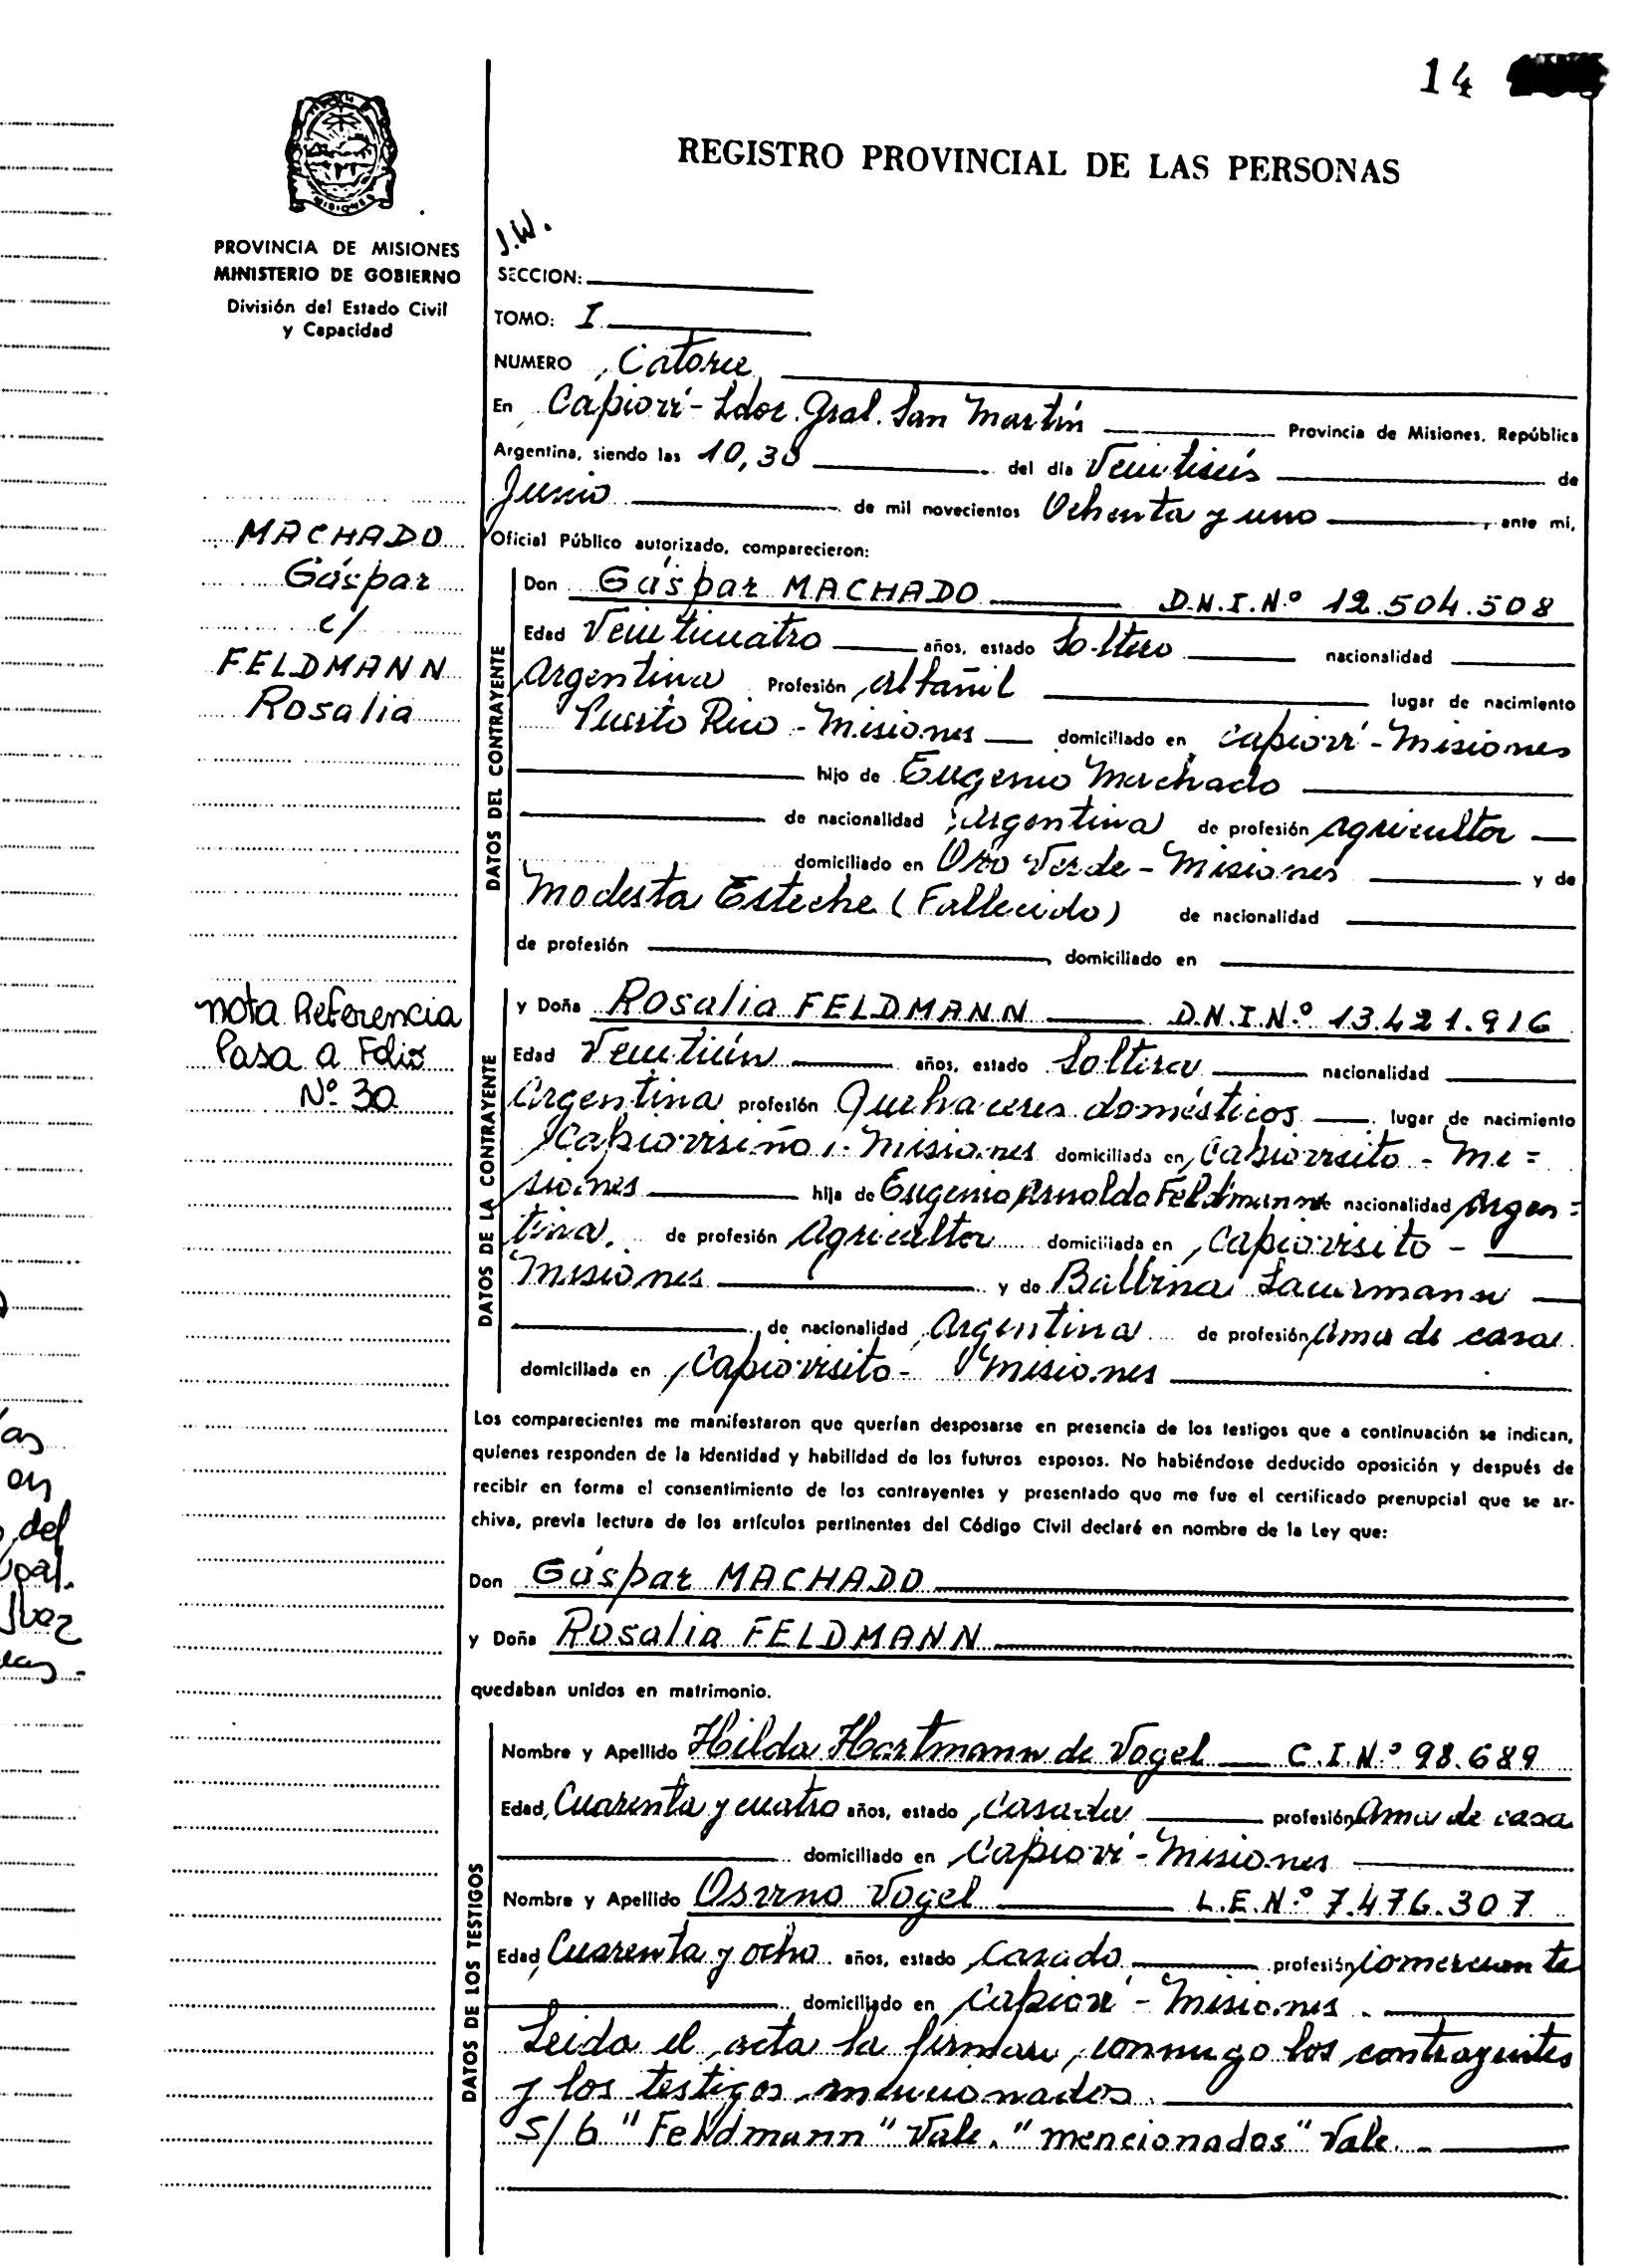 14
REGISTRO PROVINCIAL DE LAS PERSONAS
MISIONES
PROVINCIA DE MISIONES
MINISTERIO DE GOBIERNO
División del Estado Civil
y Capacidad
J.W.
SECCION:
TOMO: I
NUMERO Catorce
En Capioví - Ldor. Gral. San Martín Provincia de Misiones, República
Argentina, siendo las 10,30 del día Veintiseis de
Junio de mil novecientos Ochenta y uno, ante mi,
Oficial Público autorizado, comparecieron:
MACHADO
Gáspar
c/
FELDMANN
Rosalia
DATOS DEL CONTRAYENTE
Don Gáspar MACHADO D.N.I.N.º 12.504.508
Edad Veinticuatro años, estado Soltero nacionalidad
Argentina Profesión Albañil lugar de nacimiento
Puerto Rico - Misiones domiciliado en Capioví - Misiones
hijo de Eugenio Machado
de nacionalidad Argentina de profesión Agricultor
domiciliado en Oro Verde - Misiones y de
Modesta Esteche (Fallecido) de nacionalidad
de profesión domiciliado en
nota Referencia
Pasa a Folio
Nº 30
DATOS DE LA CONTRAYENTE
y Doña Rosalia FELDMANN D.N.I.N.º 13.421.916
Edad Veintiún años, estado Soltera nacionalidad
Argentina profesión Quehaceres domésticos lugar de nacimiento
Misiones domiciliada en Capiovisito - Mi=
siones hija de Eugenio Arnoldo Feldmann de nacionalidad Argen=
tina. de profesión Agricultor domiciliada en Capiovisito -
Misiones y de Balbina Lauermann
de nacionalidad Argentina de profesión Ama de casa
domiciliada en Capiovisito - Misiones
Los comparecientes me manifestaron que querían desposarse en presencia de los testigos que a continuación se indican,
quienes responden de la identidad y habilidad de los futuros esposos. No habiéndose deducido oposición y después de
recibir en forma el consentimiento de los contrayentes y presentado que me fue el certificado prenupcial que se ar-
chiva, previa lectura de los artículos pertinentes del Código Civil declaré en nombre de la Ley que:
Don Gáspar MACHADO
y Doña Rosalia FELDMANN
quedaban unidos en matrimonio.
DATOS DE LOS TESTIGOS
Nombre y Apellido Hilda Hartmann de Vogel C.I.N.º 98.689
Edad Cuarenta y cuatro años, estado Casada profesión Ama de casa
domiciliado en Capioví - Misiones
Nombre y Apellido Vogel L.E.N.º 7.476.307
Edad Cuarenta y ocho años, estado Casado profesión Comerciante
domiciliado en Capioví - Misiones
Leida el acta la firman, conmigo los contrayentes
y los testigos mencionados.
S/b "Feldmann" Vale. "mencionados" Vale.
as
on
del
pal.
Juez
las -